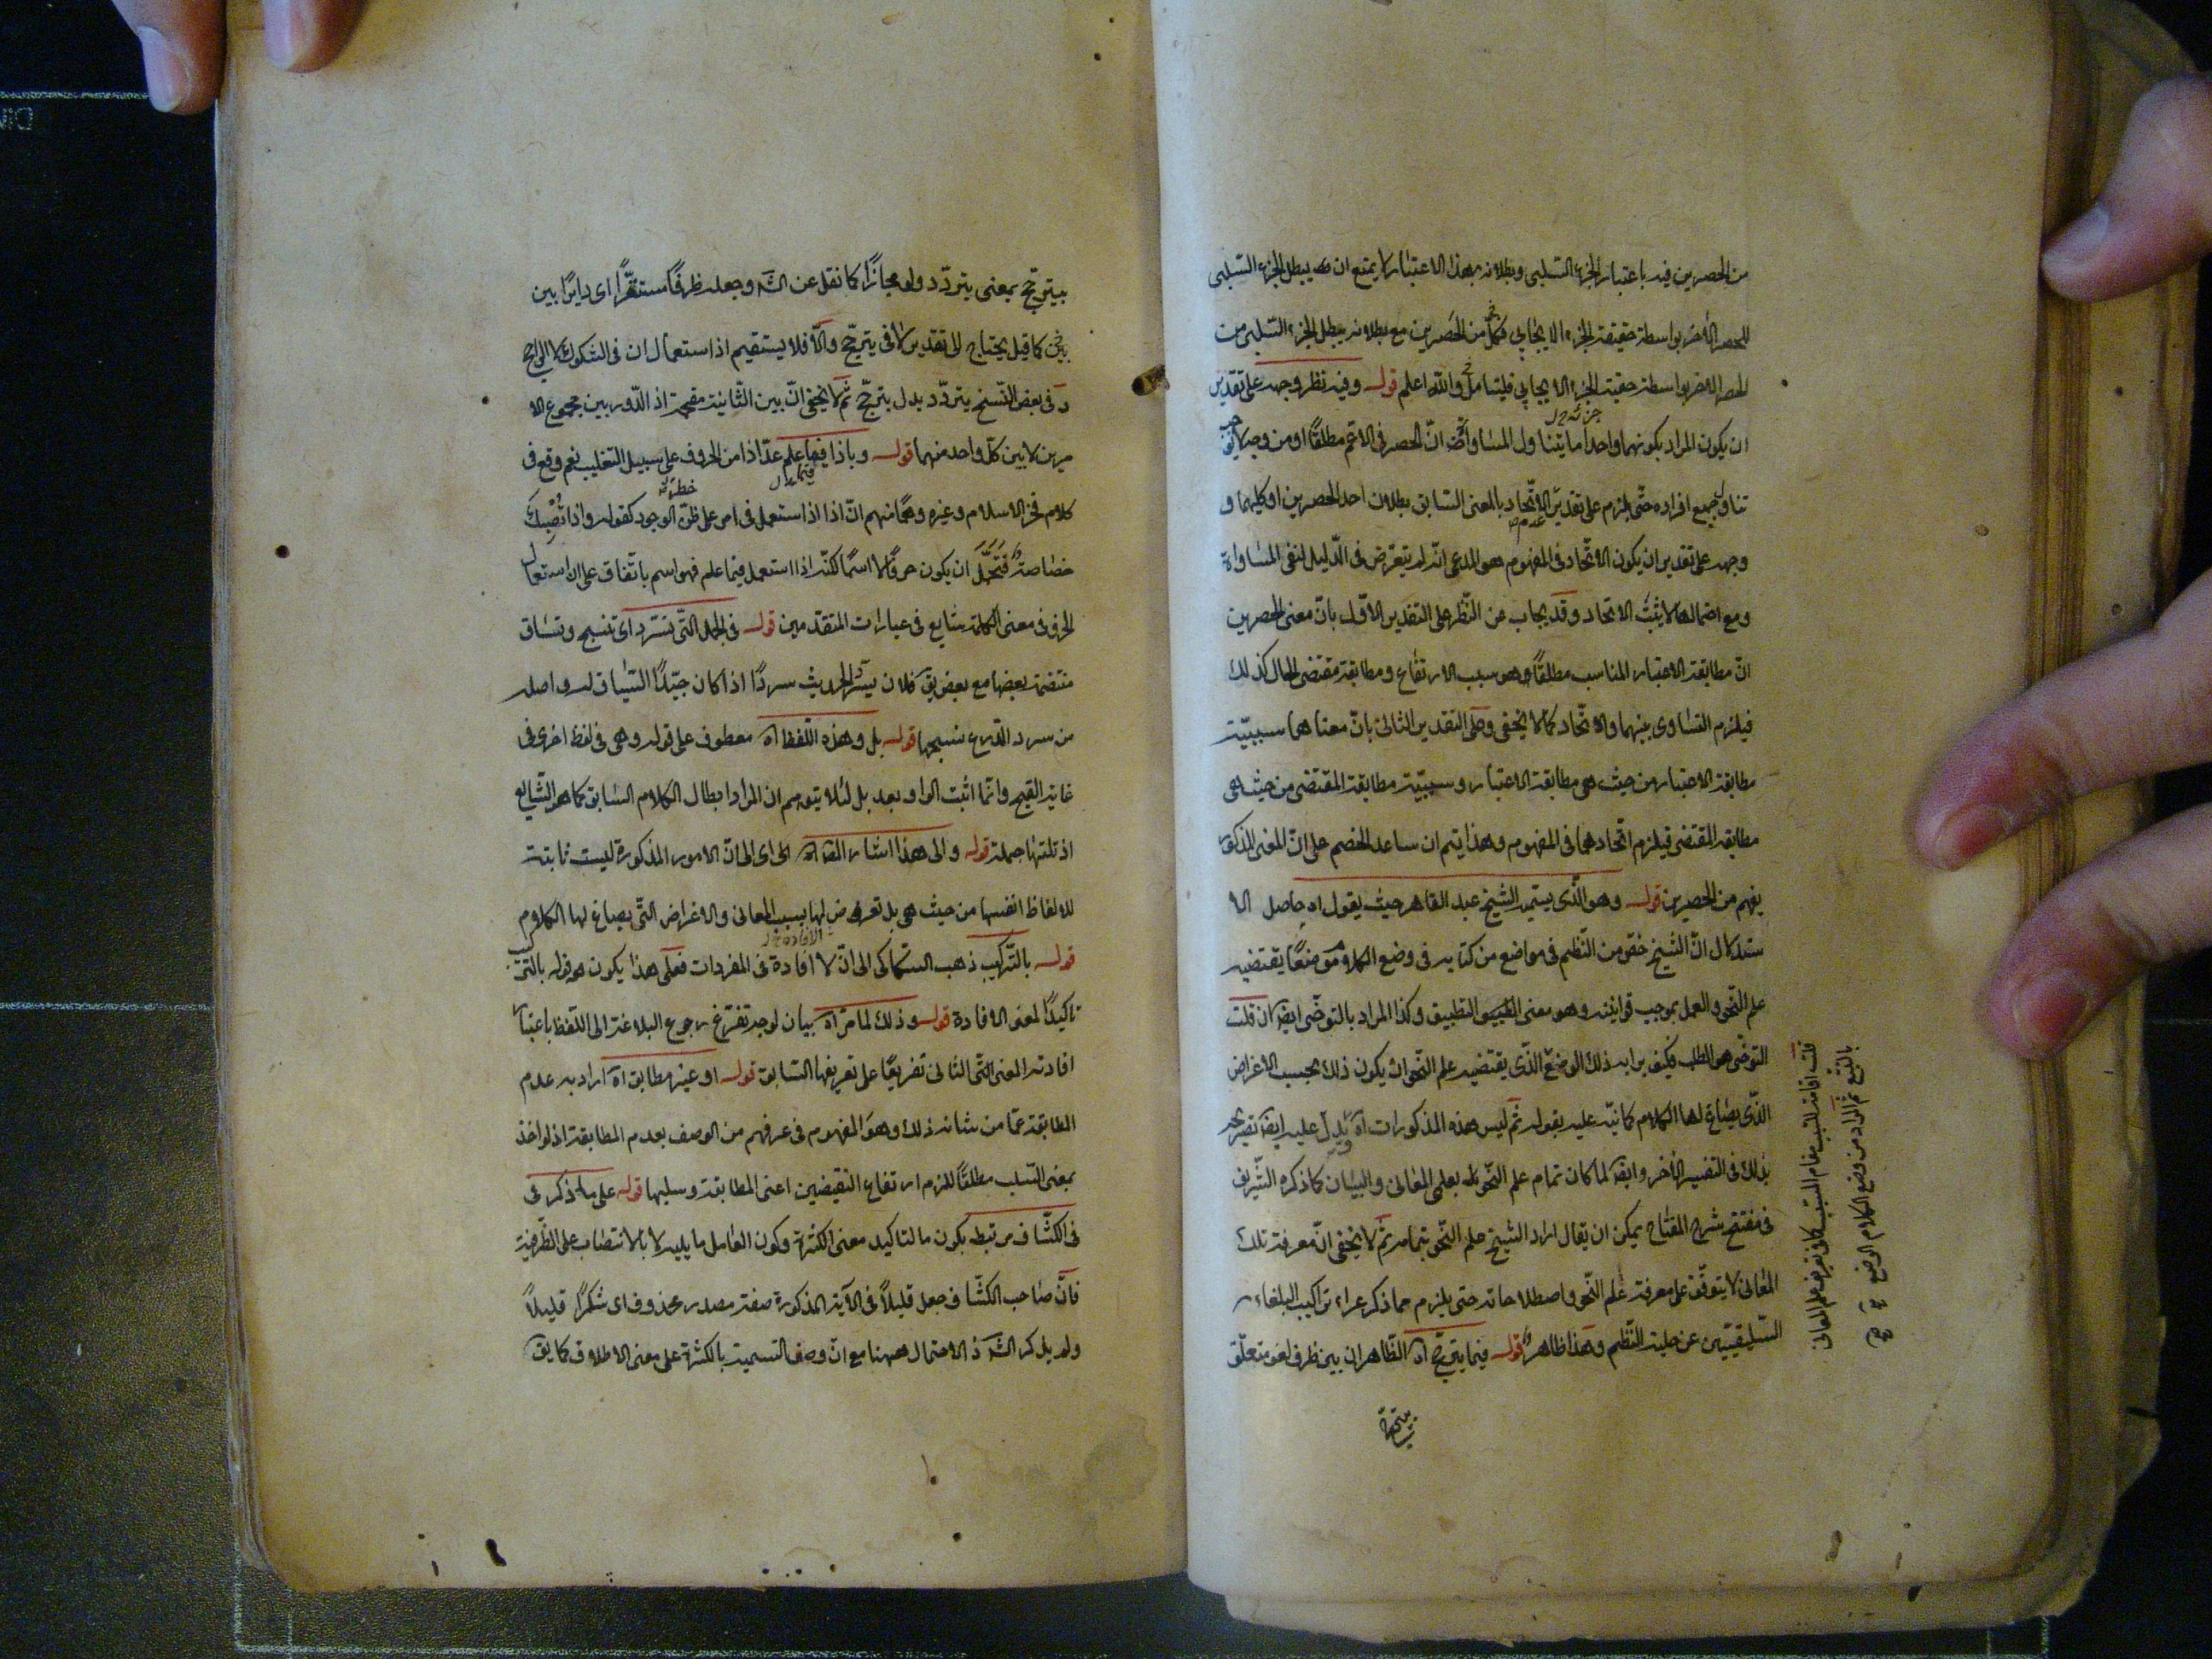 من الحصرين فيه باعتبار الجزء السلبى وبطلانه بهذا الاعتبار لا يمنع ان يبطل الجزء السلبى
للحصر الآخر بواسطة حقيقة الجزء الايجابى فكل من الحصرين مع بطلانه يبطل الجزء السلبى من
الحصر الآخر بواسطة حقية الجزء الايجابى فليتامل والله اعلم قوله وفيه نظر وجهه على تقدير
ان يكون المراد بكونهما واحدا ما يتناول المساواة ان الحصر فى الاعم مطلقا او من وجه لا
تناول جميع افراده حتى يلزم على تقدير الاتحاد بالمعنى السابق بطلان احد الحصرين او كليهما و
عدم
وجهه على تقدير ان يكون الاتحاد فى المفهوم هو المدعى انه لم يتعرض فى الدليل لنفى المساواة
ومع احتمالها لا يثبت الاتحاد وقد يجاب عن النظر على التقدير الاول بان معنى الحصرين
ان مطابقة الاعتبار المناسب مطلقا هو سبب الارتفاع ومطابقة مقتضى الحال كذلك
فيلزم التساوى بينهما والاتحاد كما لا يخفى وعلى التقدير الثانى بان معناهما سببية
مطابقة الاعتبار من حيث هى مطابقة الاعتبار وسببية مطابقة المقتضى من حيث هى
مطابقة المقتضى فيلزم اتحادهما فى المفهوم وهذا يتم ان ساعد الخصم على ان المعنى المذكور
يفهم من الحصرين قوله وهو الذى يسميه الشيخ عبد القاهر حيث يقول اه حاصل الا
ستدلال ان الشيخ حقق من النظم فى مواضع من كتابه فى وضع الكلام موضعا يقتضيه
علم النحو والعمل بموجب قوانينه وهو معنى التطبيق وكذا المراد بالتوخى ايضا ان قلت
التوخى هو الطلب فكيف يراد به ذلك الوضع الذى يقتضيه علم النحو ان يكون ذلك بحسب الاغراض
الذى يصاغ لها الكلام كما نبه عليه بقوله ثم ليس هذه المذكورات اه ويدل عليه ايضا تصريحه
بذلك فى التفسير الآخر وايضا لما كان تمام علم النحو بعلمى المعانى والبيان كما ذكره الشريف
فى مفتتح شرح المفتاح يمكن ان يقال اراد الشيخ علم النحو بتمامه ثم لا يخفى ان معرفة تلك
المعانى لا يتوقف على معرفة علم النحو واصطلاحاته حتى يلزم مما ذكر عراء تراكيب البلغاء
السليقيين عن حلية النظم وهذا ظاهر قوله فيما يترجح اه الظاهر ان بين ظرف لغو متعلق
قلت اقامة للسبب مقام المسبب كما فى تعريف علم المعانى
بالتتبع ثم المراد من وضع الكلام الوضع
بيترجح
بيترجح بمعنى يتردد ولو مجازا كما نقل عن الش وجعله ظرفا مستقرا اى دايرا بين
بين كما قيل يحتاج الى تقدير لا فى يترجح والا فلا يستقيم اذ استعمال ان فى الشكوك لا الراجح
وفى بعض النسخ يتردد بدل يترجح ثم لا يخفى ان بين الثانية مقحمة اذ الدور بين مجموع الا
مرين لا بين كل واحد منهما قوله وباذا فيما علم عد اذا من الحروف على سبيل التغليب نعم وقع فى
كلام فخر الاسلام وغيره وهما منهم ان اذا اذا استعمل فى امر على خطر الوجود كقوله واذا تصبك
خصاصة فتجمل ان يكون حرفا لا اسما لكنه اذا استعمل فيما علم فهو اسم باتفاق على ان استعمال
الحرف فى معنى الكلمة شايع فى عبارات المتقدمين قوله فى الجمل التى تسرد اى تنسج وتساق
منتضمة بعضها مع بعض يق فلان يسرد الحديث سردا اذا كان جيد السياق له واصله
من سرد الدرع نسجها قوله بل وهذه اللفظ اه معطوف على قوله وهى فى لفظ اخرى فى
غاية القبح وانما اثبت الواو بعد بل لئلا يتوهم ان المراد ابطال الكلام السابق كما هو الشايع
اذ تلتها جملة قوله والى هذا اشار المص اه الى اى الى ان الامور المذكورة ليست ثابتة
للالفاظ انفسها من حيث هى بل تعرض لها بسبب المعانى والاغراض التى يصاغ لها الكلام
قوله بالتركيب ذهب السكاكى الى ان لا افادة فى المفردات فعلى هذا يكون قوله بالتركيب
تاكيدا لمعنى الافادة قوله وذلك لما مر اه بيان لوجه تفرع رجوع البلاغة الى اللفظ باعتبار
افادته المعنى الثانى تفريعا على تعريفها السابق قوله او غير مطابق اه اراد به عدم
المطابقة عما من شانه ذلك وهو المفهوم فى عرفهم من الوصف بعدم المطابقة اذ لو اخذ
بمعنى السلب مطلقا للزم ارتفاع النقيضين اعنى المطابقة وسلبها قوله على ما ذكر فى
فى الكشاف مرتبط بكون ما لتاكيد معنى الكثرة وكون العامل ما يليه لا بالانتصاب على الظرفية
فان صاحب الكشاف جعل قليلا فى الآية المذكورة صفة مصدر محذوف اى شكرا قليلا
ولم يذكر الش ذ الاحتمال ههنا مع ان وصف التسمية بالكثرة على معنى الاطلاق كما يق